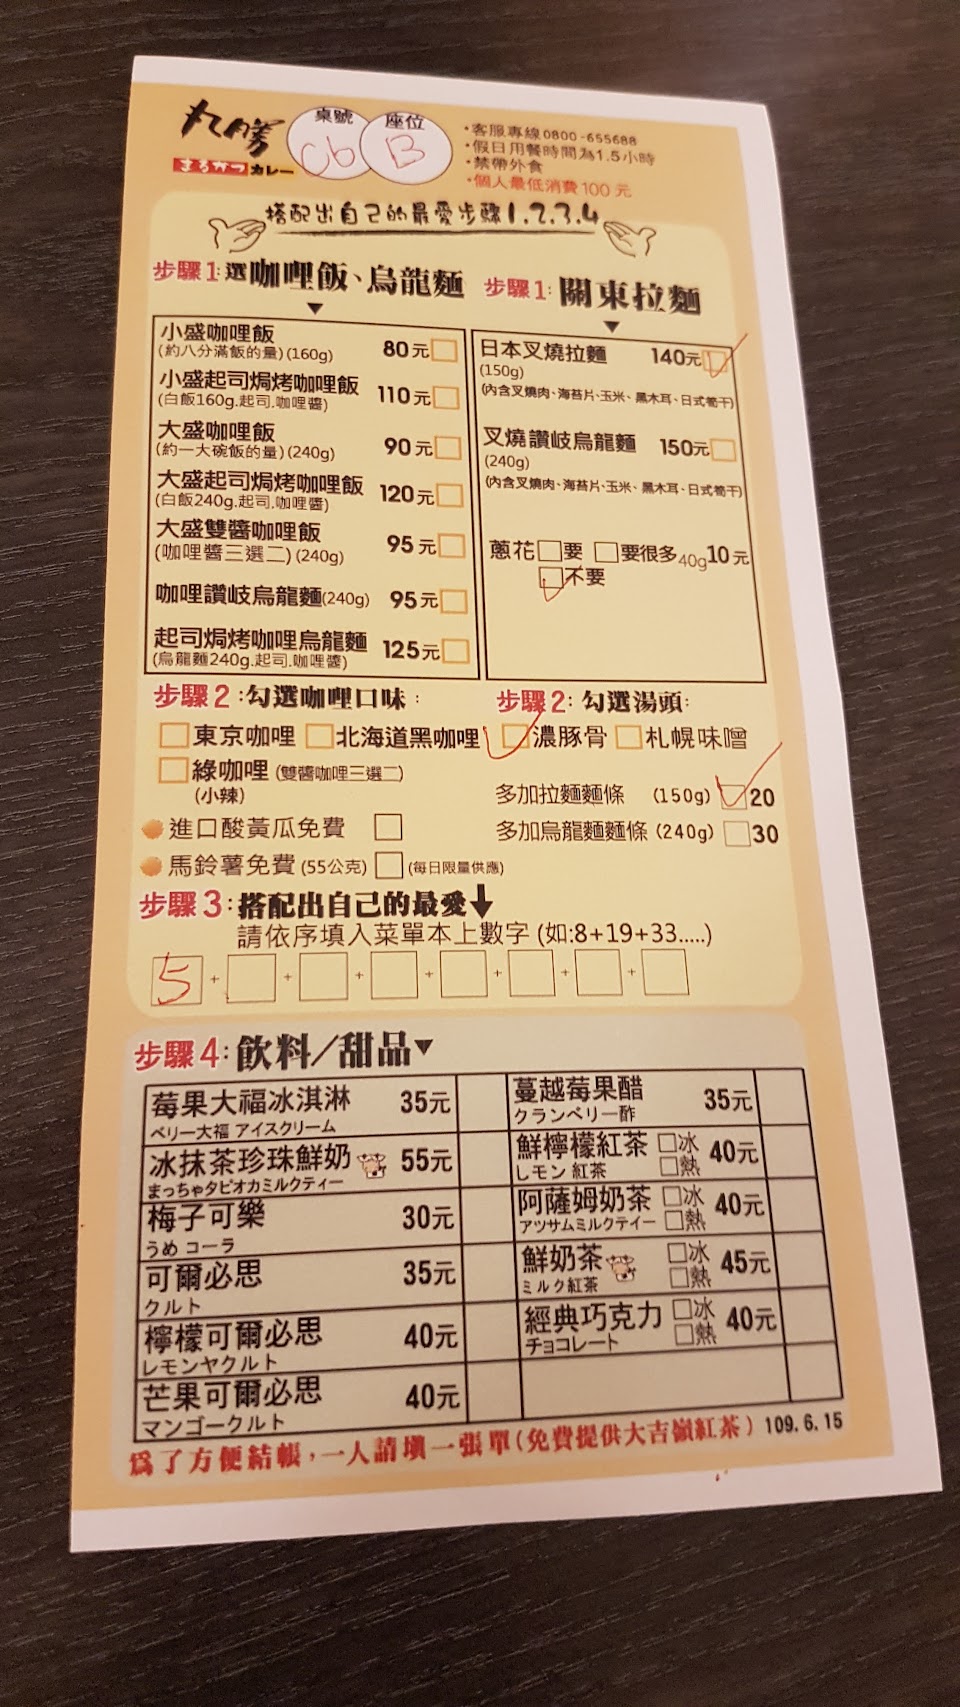 丸勝
まるかつカレー
桌號
C6
座位
B
・客服專線0800-655688
・假日用餐時間為1.5小時
・禁帶外食
・個人最低消費100元
搭配出自己的最愛步驟1.2.3.4
步驟1:選咖哩飯、烏龍麵
小盛咖哩飯 80元
(約八分滿飯的量)(160g)
小盛起司焗烤咖哩飯 110元
(白飯160g.起司.咖哩醬)
大盛咖哩飯 90元
(約一大碗飯的量)(240g)
大盛起司焗烤咖哩飯 120元
(白飯240g.起司.咖哩醬)
大盛雙醬咖哩飯 95元
(咖哩醬三選二)(240g)
咖哩讚岐烏龍麵(240g) 95元
起司焗烤咖哩烏龍麵 125元
(烏龍麵240g.起司.咖哩醬)
步驟1:關東拉麵
日本叉燒拉麵 140元
(150g)
(內含叉燒肉、海苔片、玉米、黑木耳、日式筍干)
叉燒讚岐烏龍麵 150元
(240g)
(內含叉燒肉、海苔片、玉米、黑木耳、日式筍干)
蔥花 要 要很多40g10元
不要
步驟2:勾選咖哩口味:
東京咖哩 北海道黑咖哩
綠咖哩(雙醬咖哩三選二)
(小辣)
進口酸黃瓜免費
馬鈴薯免費(55公克) (每日限量供應)
步驟2:勾選湯頭:
濃豚骨 札幌味噌
多加拉麵麵條 (150g) 20
多加烏龍麵麵條(240g) 30
步驟3:搭配出自己的最愛
請依序填入菜單本上數字(如:8+19+33.....)
5 + + + + + + +
步驟4:飲料/甜品
莓果大福冰淇淋 35元
ベリー大福 アイスクリーム
冰抹茶珍珠鮮奶 55元
まっちゃタピオカミルクティー
梅子可樂 30元
うめ コーラ
可爾必思 35元
クルト
檸檬可爾必思 40元
レモンヤクルト
芒果可爾必思 40元
マンゴークルト
蔓越莓果醋 35元
クランベリー酢
鮮檸檬紅茶 冰 熱 40元
レモン 紅茶
阿薩姆奶茶 冰 熱 40元
アツサムミルクテイー
鮮奶茶 冰 熱 45元
ミルク紅茶
經典巧克力 冰 熱 40元
チョコレート
為了方便結帳,一人請填一張單(免費提供大吉嶺紅茶) 109.6.15